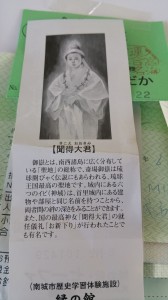 だか
22
きこえ おおきみ
【聞得大君】
御嶽とは、南西諸島に広く分布している
「聖地」の総称で、斎場御嶽は琉
球開びゃく伝説にもあらわれる、琉球
王国最高の聖地です。域内にある六
つのイビ(神域)は、首里城内にある建
物や部屋と同じ名前を持つことから、
両者間の絆の深さをみることができます。
また、国の最高神女「聞得大君」の就
任儀礼「お新下り」が行われたことで
も有名です。
〈南城市歴史学習体験施設〉
緑の館